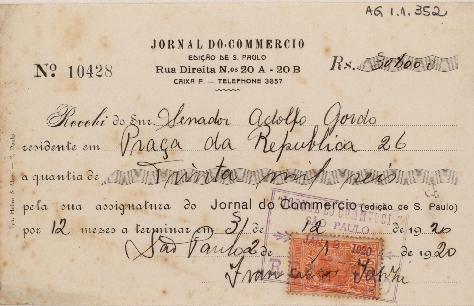 AG I.1.352
JORNAL DO COMMERCIO
EDIÇÃO DE S. PAULO
Nº 10428
Rua Direita N.os 20 A - 20 B
Rs. 30$000
CAIXA F. — TELEPHONE 3357
Recebi do Snr. Senador Adolfo Gordo
residente em Praça da Republica 26
a quantia de Trinta mil reis
pela sua assignatura do Jornal do Commercio (edição de S. Paulo)
por 12 mezes a terminar em 31 de 12 de 1920
São Paulo 2 de 1 de 1920
SÃO PAULO
1920